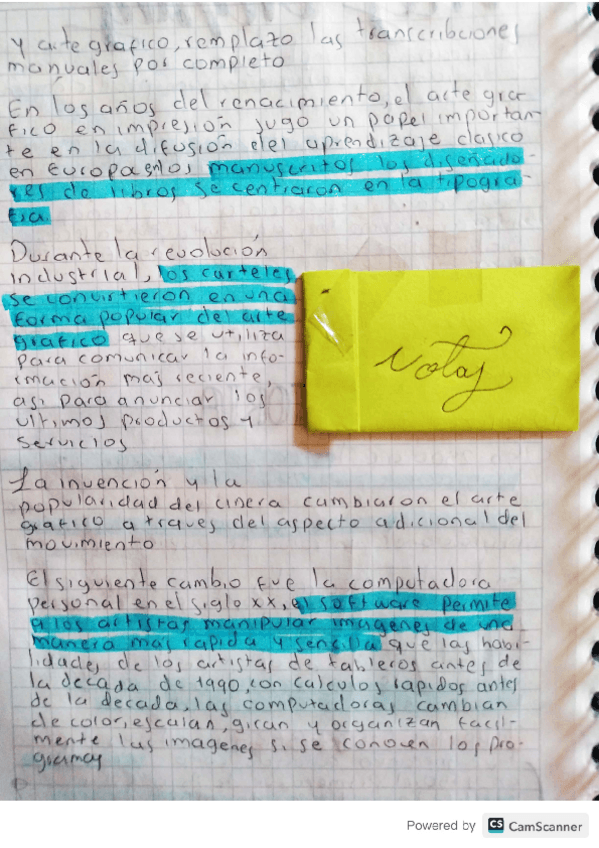 y arte grafico, remplazo las transcribciones
manuales por completo
En los años del renacimiento, el arte gra-
fico en impresión jugo un papel importan-
te en la difusión del aprendizaje clasico
en Europa enlos manuscritos los diseñado-
res de libros se centraron en la tipogra-
fia.
Durante la revolución
industrial, los carteles
se convirtieron en una
forma popular del arte
grafico que se utiliza
para comunicar la info-
rmación mas reciente,
asi para anunciar los
ultimos productos y
servicios
Notas
La invención y la
popularidad del cinera cambiaron el arte
grafico a traques del aspecto adicional del
movimiento
El siguiente cambio fue la computadora
personal en el siglo xx, el software permite
a los artistas manipular imagenes de una
manera mas rapida y sensilla que las habi-
lidades de los artistas de tableros antes de
la decada de 1990, con calculos rapidos antes
de la decada, las computadoras cambian
de color, escalan, giran y organizan facil-
mente las imagenes si se conocen los pro-
gramas
Powered by CS CamScanner